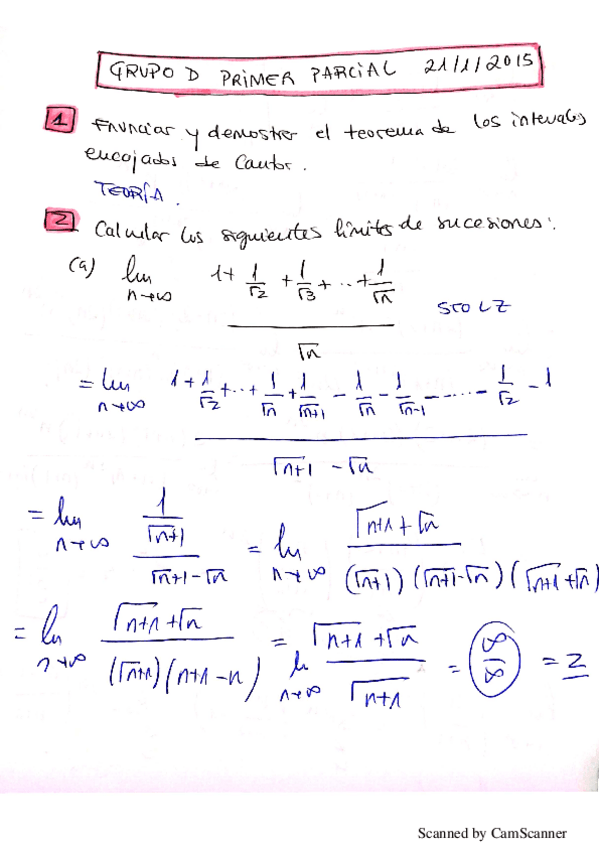 GRUPO D PRIMER PARCIAL 21/1/2015
1 Enunciar y demostrar el teorema de los intervalos
encajados de Cantor.
TEORÍA.
2 Calcular los siguientes límites de sucesiones:
(a) lim n→∞ (1 + 1/√2 + 1/√3 + ... + 1/√n) / √n STOLZ
= lim n→∞ (1 + 1/√2 + ... + 1/√n + 1/√n+1 - 1/√n - 1/√n-1 - ... - 1/√2 - 1) / (√n+1 - √n)
= lim n→∞ (1/√n+1) / (√n+1 - √n) = lim n→∞ (√n+1 + √n) / ((√n+1)(√n+1 - √n)(√n+1 + √n))
= lim n→∞ (√n+1 + √n) / ((√n+1)(n+1-n)) = lim n→∞ (√n+1 + √n) / √n+1 = (∞/∞) = 2
Scanned by CamScanner